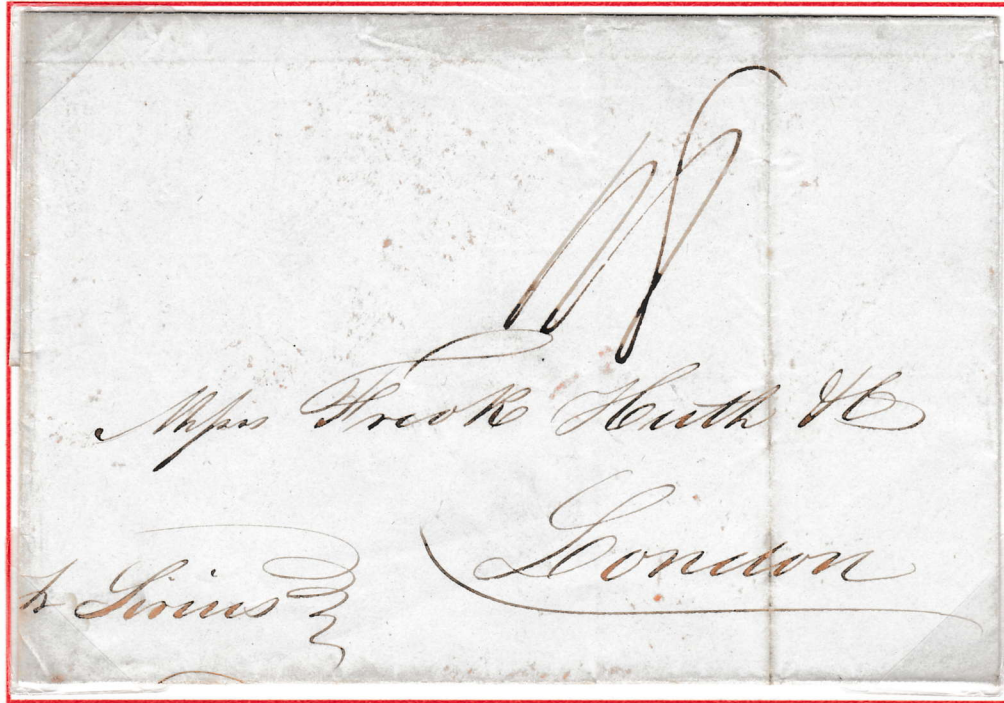 Messrs Fredk Huth & Co
London
pr Sirius